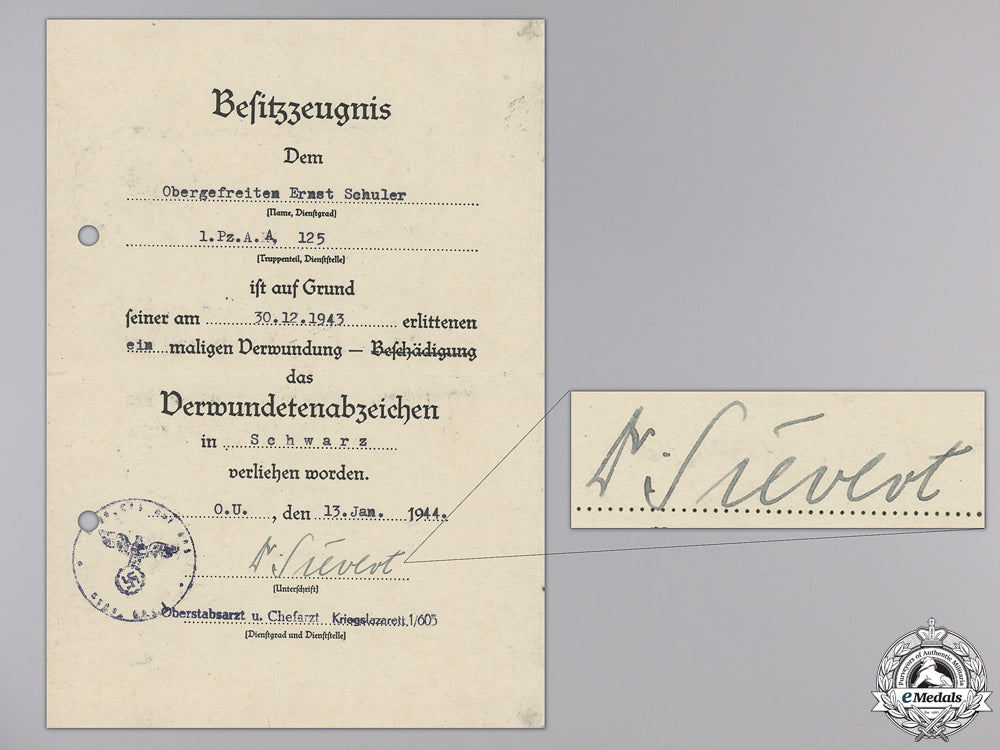 Besitzzeugnis
Dem
Obergefreiten Ernst Schuler
(Name, Dienstgrad)
1.Pz.A.A, 125
(Truppenteil, Dienststelle)
ist auf Grund
seiner am 30.12.1943 erlittenen
ein maligen Verwundung – Beschädigung
das
Verwundetenabzeichen
in Schwarz
verliehen worden.
O.U. , den 13.Jan. 1944.
Dr. Sievert
(Unterschrift)
Oberstabsarzt u. Chefarzt Kriegslazarett 1/605
(Dienstgrad und Dienststelle)
Dr. Sievert
Purveyors of Authentic Militaria
eMedals